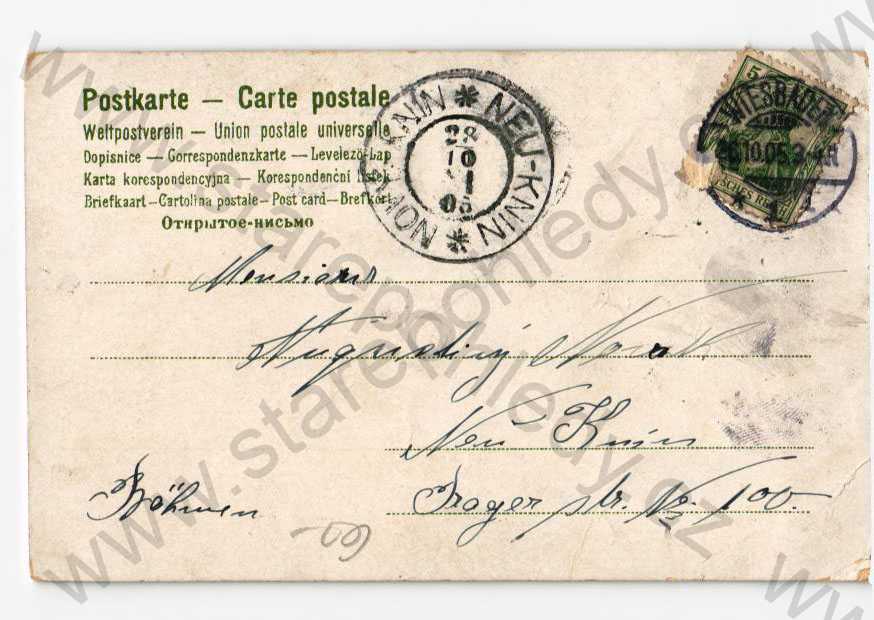 Postkarte — Carte postale
Weltpostverein — Union postale universelle
Dopisnice — Correspondenzkarte — Levelező-Lap
Karta korespondencyjna — Korespondenční lístek
Briefkaart — Cartolina postale — Post card — Brefkort
Открытое-письмо
NEU-KNIN
28
10
05
WIESBADEN
10.05.3-4N
5
Monsieur
Augustiny Novak
Neu Knin
Prager str. No 100.
Böhmen
60-
www.starepohledy.cz